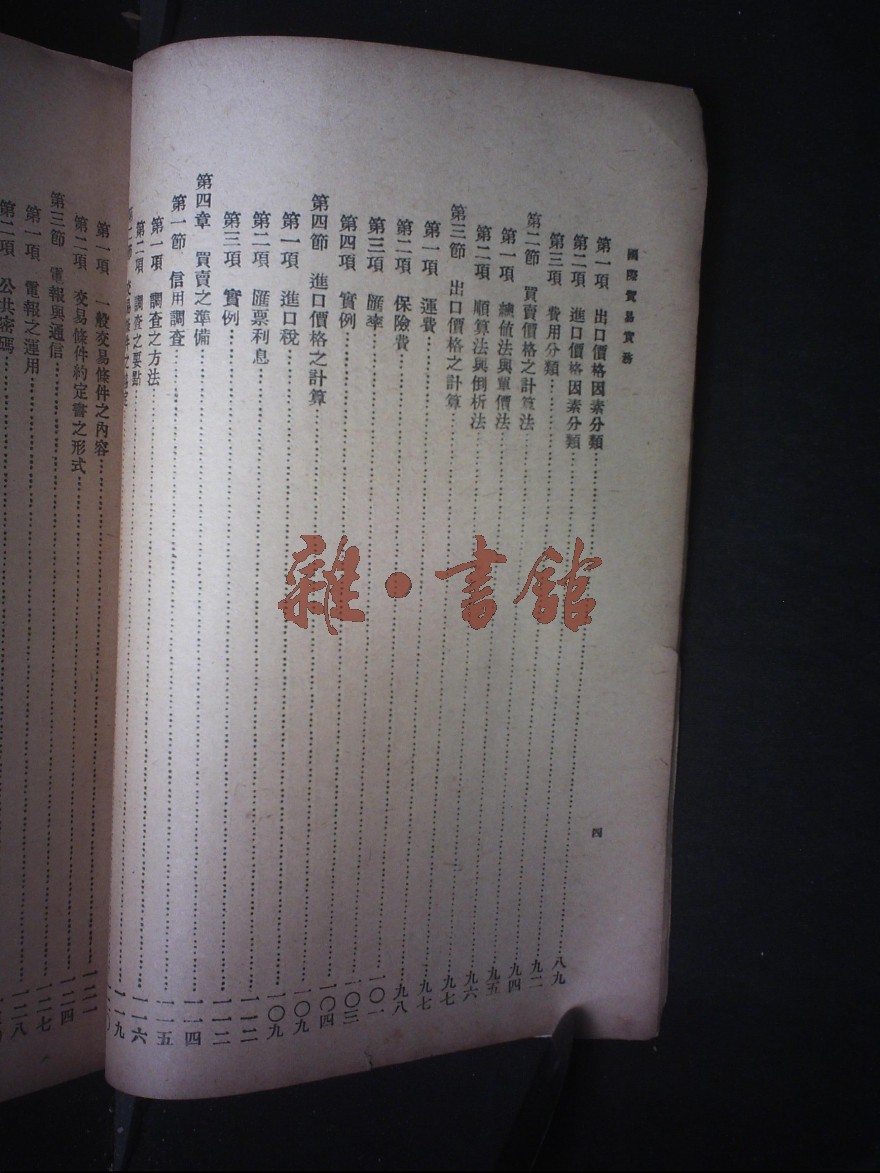 國際貿易實務
四
第一項 出口價格因素分類……八九
第二項 進口價格因素分類……九二
第三項 費用分類……九四
第二節 買賣價格之計算法……九五
第一項 總値法與單價法……九六
第二項 順算法與倒析法……九七
第三節 出口價格之計算……九七
第一項 運費……九八
第二項 保險費……一〇一
第三項 匯率……一〇三
第四項 實例……一〇四
第四節 進口價格之計算……一〇九
第一項 進口稅……一〇九
第二項 匯票利息……一一二
第三項 實例……一一二
第四章 買賣之準備……一一四
第一節 信用調查……一一五
第一項 調查之方法……一一六
第二項 調查之要點……一一九
第一項 一般交易條件之內容……一二一
第二項 交易條件約定書之形式……一二四
第三節 電報與通信……一二七
第一項 電報之運用……一二八
第二項 公共密碼……
雜·書館